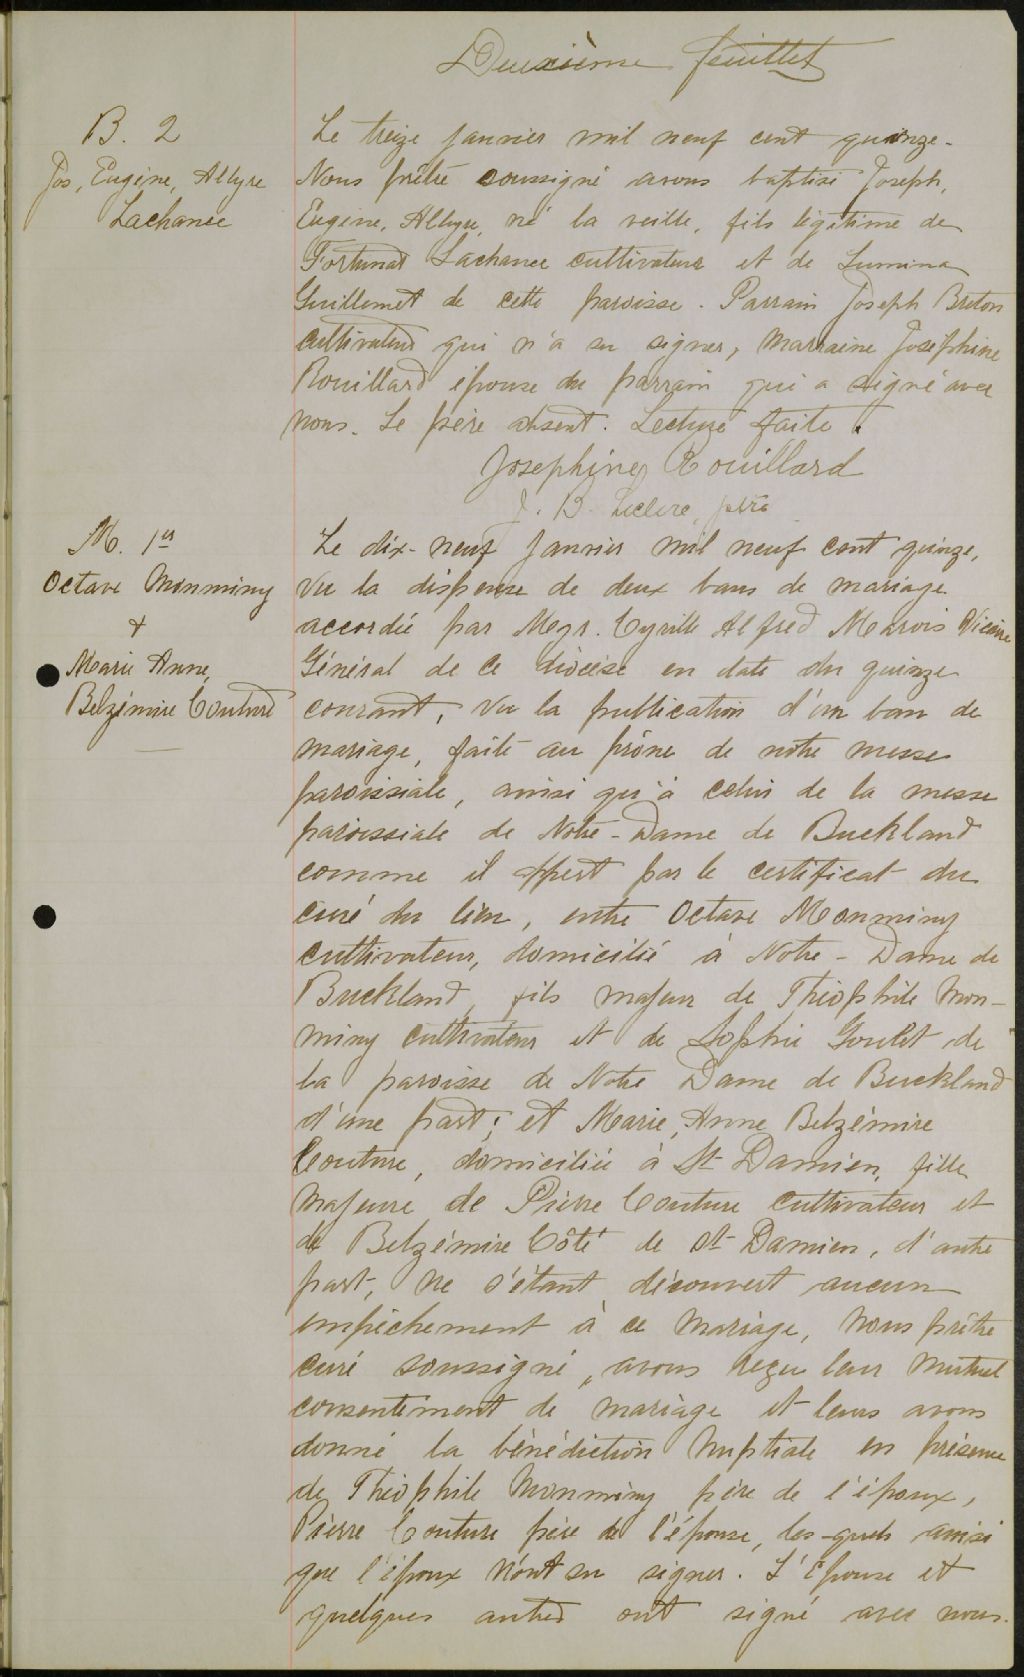 Deuxième feuillet
B. 2
Jos, Eugène, Allyre
Lachance
Le treize janvier mil neuf cent quinze.
Nous prêtre soussigné avons baptisé Joseph,
Eugène, Allyre, né la veille, fils légitime de
Fortunat Lachance cultivateur et de Lumina
Guillemet de cette paroisse. Parrain Joseph Breton
cultivateur qui n'a su signer, marraine Joséphine
Rouillard épouse du parrain qui a signé avec
nous. Le père absent. Lecture faite.
Josephine Rouillard
J. B. Leclerc, ptre
M. 1er
Octave Monminy
&
Marie Anne,
Belzémire Couture
Le dix-neuf janvier mil neuf cent quinze,
vu la dispense de deux bans de mariage
accordée par Mgr. Cyrille Alfred Marois Vicaire
Général de ce diocèse en date du quinze
courant, vu la publication d'un ban de
mariage, faite au prône de notre messe
paroissiale, ainsi qu'à celui de la messe
paroissiale de Notre-Dame de Buckland
comme il appert par le certificat du
curé du lieu, entre Octave Monminy
cultivateur, domicilié à Notre-Dame de
Buckland, fils majeur de Théophile Mon-
miny cultivateur et de Sophie Goulet de
la paroisse de Notre Dame de Buckland
d'une part; et Marie, Anne Belzémire
Couture, domiciliée à St Damien, fille
majeure de Pierre Couture cultivateur et
de Belzémire Côté de St Damien, d'autre
part, ne s'étant découvert aucun
empêchement à ce mariage, nous prêtre
curé soussigné, avons reçu leur mutuel
consentement de mariage et leurs avons
donné la bénédiction nuptiale en présence
de Théophile Monminy père de l'époux,
Pierre Couture père de l'épouse, les-quels ainsi
que l'époux n'ont su signer. L'épouse et
quelques autres ont signé avec nous.